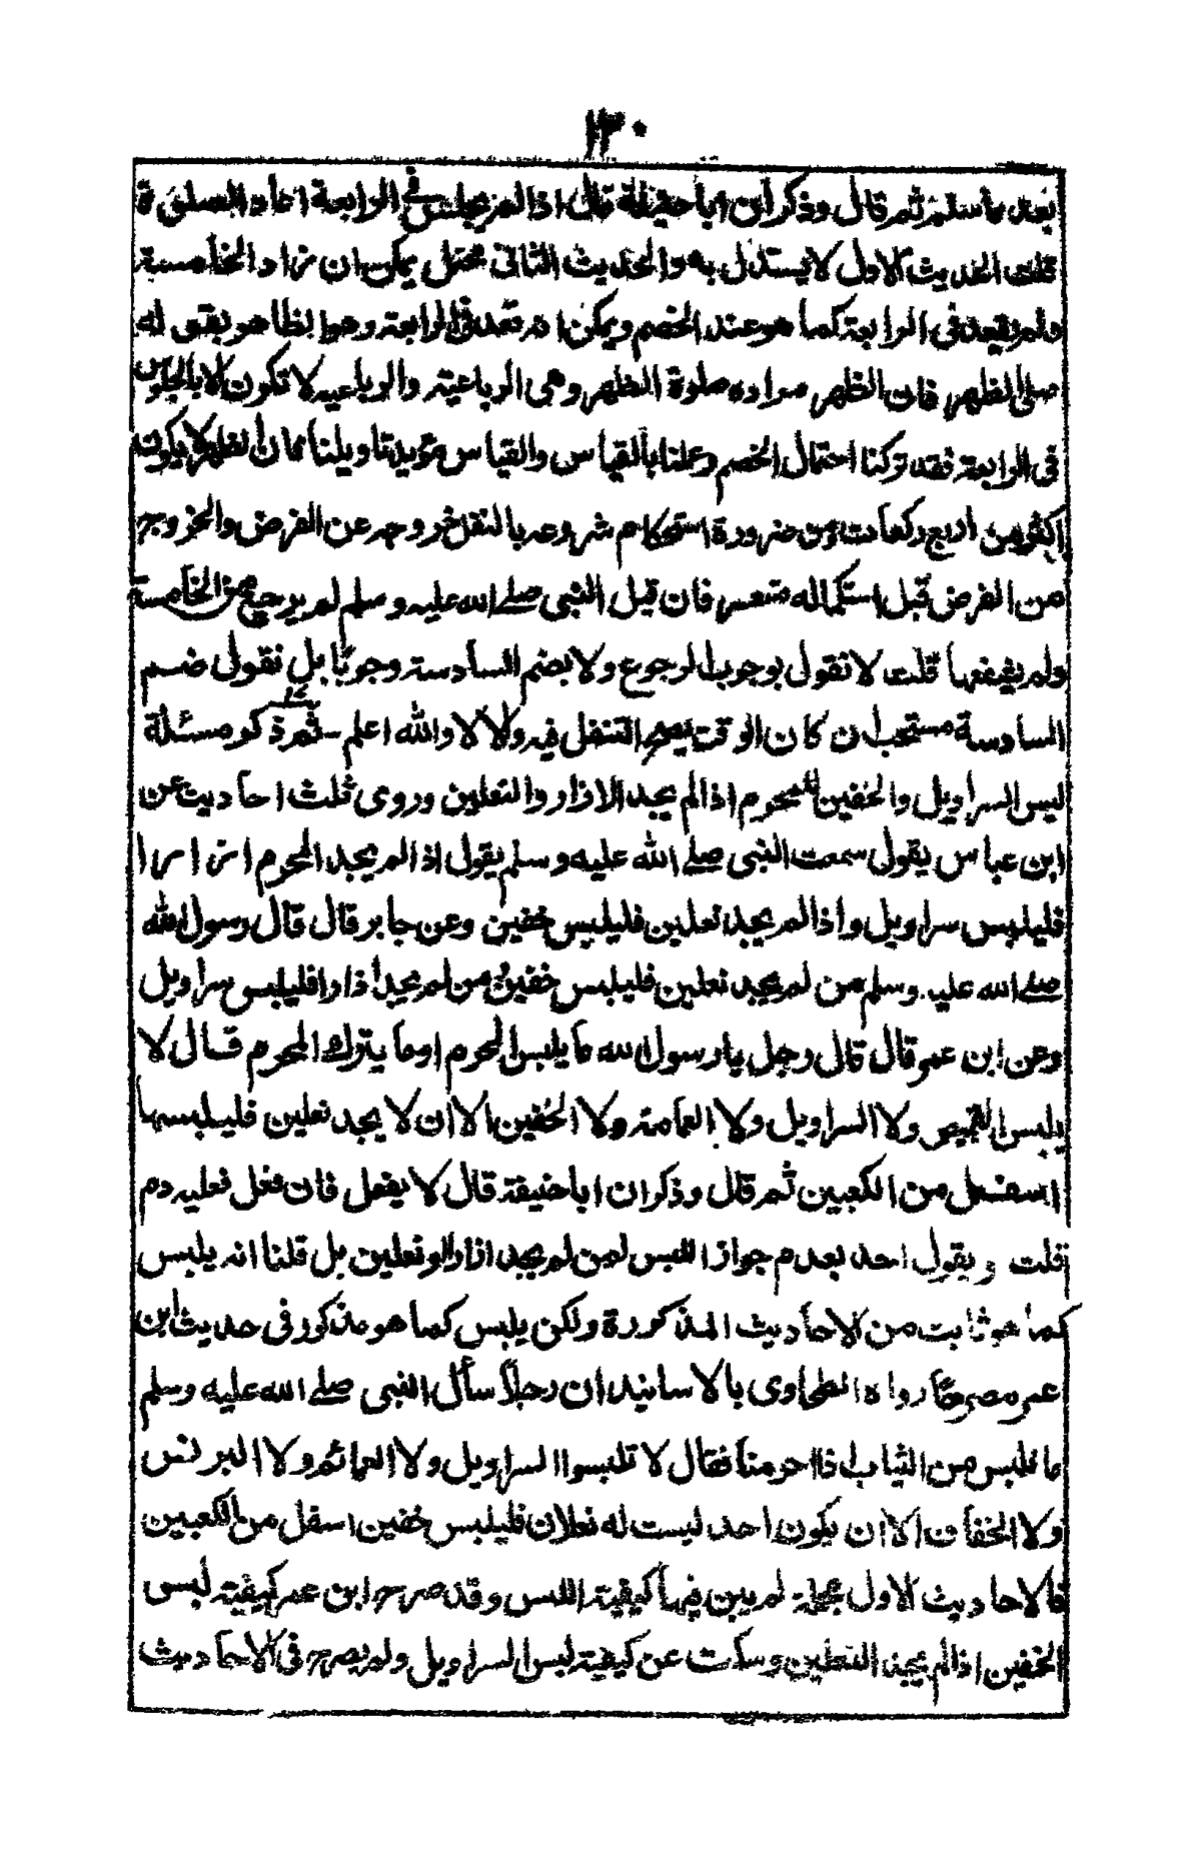 ١٣٠
بعد ما سلم ثم قال وذكر ان ابا حنيفة قال اذا لم يجلس في الرابعة اعاد الصلوة
قلت الحديث الاول لا يستدل به والحديث الثاني محتمل يمكن ان زاد الخامسة
ولم يقعد فى الرابعة كما هو عند الخصم ويمكن انه قعد فى الرابعة وهو الظاهر بقوله
صلى الظهر فان الظهر مراده صلوة الظهر وهى الرباعية والرباعيه لا تكون الا بالجلوس
فى الرابعة فقد تركنا احتمال الخصم وعملنا بالقياس والقياس مؤيد تاويلنا فان الظهر لا يكون
اكثر من اربع ركعات ومن ضرورة استحكام شروعه بالنفل خروجه عن الفرض والخروج
من الفرض قبل استكماله متعسر فان قيل النبى صلى الله عليه وسلم لم يرجع من الخامسة
ولم يشفعها قلت لا نقول بوجوب الرجوع ولا بضم السادسة وجوبًا بل نقول ضم
السادسة مستحب ان كان الوقت يصح التنفل فيه ولا لا والله اعلم - ثم ذكر مسئلة
لبس السراويل والخفين للمحرم اذا لم يجد الازار والنعلين وروى ثلث احاديث عن
ابن عباس يقول سمعت النبى صلى الله عليه وسلم يقول اذا لم يجد المحرم ازارا
فليلبس سراويل واذا لم يجد نعلين فليلبس خفين وعن جابر قال قال رسول الله
صلى الله عليه وسلم من لم يجد نعلين فليلبس خفين ومن لم يجد اذارا فليلبس سراويل
وعن ابن عمر قال قال رجل يا رسول الله ما يلبس المحرم اوما يترك المحرم قال لا
يلبس القميص ولا السراويل ولا العمامة ولا الخفين الا ان لا يجد نعلين فليلبسهما
اسفل من الكعبين ثم قال وذكر ان ابا حنيفة قال لا يفعل فان فعل فعليه دم
قلت ويقول احد بعدم جواز اللبس لمن لم يجد ازارا او نعلين بل قلنا انه يلبس
كما هو ثابت من الاحاديث المذكورة ولكن يلبس كما هو مذكور فى حديث ابن
عمر مصرحًا رواه الطحاوى بالاسانيد ان رجلاً سأل النبى صلى الله عليه وسلم
ما نلبس من الثياب اذا احرمنا فقال لا تلبسوا السراويل ولا العمائم ولا البرانس
ولا الخفاف الا ان يكون احد ليست له نعلان فليلبس خفين اسفل من الكعبين
فالاحاديث الاول مجملة لم يبين فيها كيفية اللبس وقد صرح ابن عمر كيفية لبس
الخفين اذا لم يجد النعلين وسكت عن كيفية لبس السراويل ولم يصرح فى الاحاديث